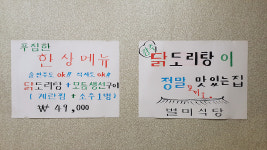 푸짐한
한식메뉴
술안주도 ok!! 식사도 ok!!
닭도리탕 + 모듬생선구이
(계란찜 + 소주1병)
₩ 49,000
닭도리탕이
정말 맛있는집
별미식당